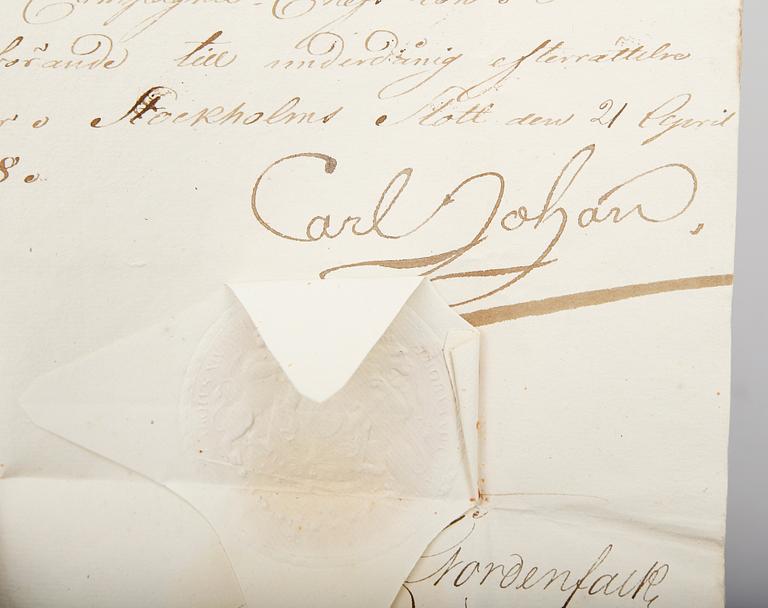 Compagnie-Chefs
börande till underdånig efterrättelse
Stockholms Slott den 21 April
8.
Carl Johan.
Nordenfalk